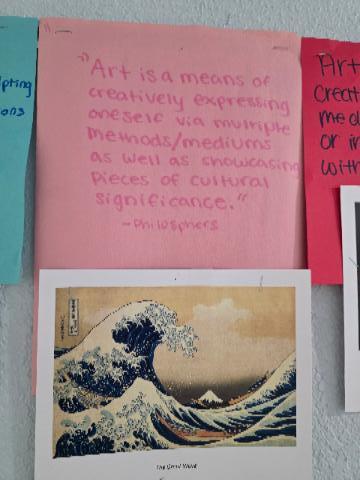 "Art is a means of
creatively expressing
oneself via multiple
methods/mediums
as well as showcasing
pieces of cultural
significance."
-Philosphers
Art
creat
med
or in
with
pting
ons
The Great Wave